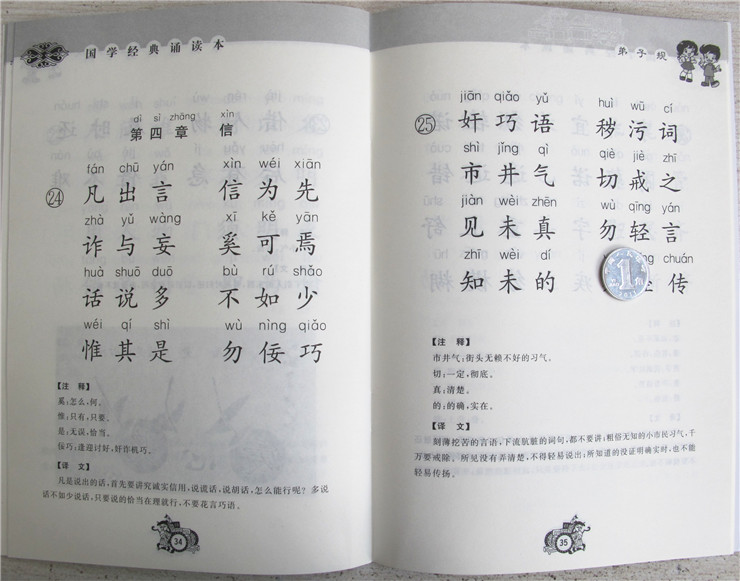 国学经典诵读本
dì sì zhāng xìn
第四章 信
fán chū yán xìn wéi xiān
㉔ 凡出言 信为先
zhà yǔ wàng xī kě yān
诈与妄 奚可焉
huà shuō duō bù rú shǎo
话说多 不如少
wéi qí shì wù nìng qiǎo
惟其是 勿佞巧
【注 释】
奚:怎么,何。
惟:只有,只要。
是:无误,恰当。
佞巧:逢迎讨好,奸诈机巧。
【译 文】
凡是说出的话,首先要讲究诚实信用,说谎话,说胡话,怎么能行呢?多说
话不如少说话,只要说的恰当在理就行,不要花言巧语。
34
弟子规
jiān qiǎo yǔ huì wū cí
㉕ 奸巧语 秽污词
shì jǐng qì qiè jiè zhī
市井气 切戒之
jiàn wèi zhēn wù qīng yán
见未真 勿轻言
zhī wèi dí chuán
知未的 传
1
【注 释】
市井气:街头无赖不好的习气。
切:一定,彻底。
真:清楚。
的:的确,实在。
【译 文】
刻薄挖苦的言语,下流肮脏的词句,都不要讲;粗俗无知的小市民习气,千
万要戒除。所见没有弄清楚,不得轻易说出;所知道的没证明确实时,也不能
轻易传扬。
35